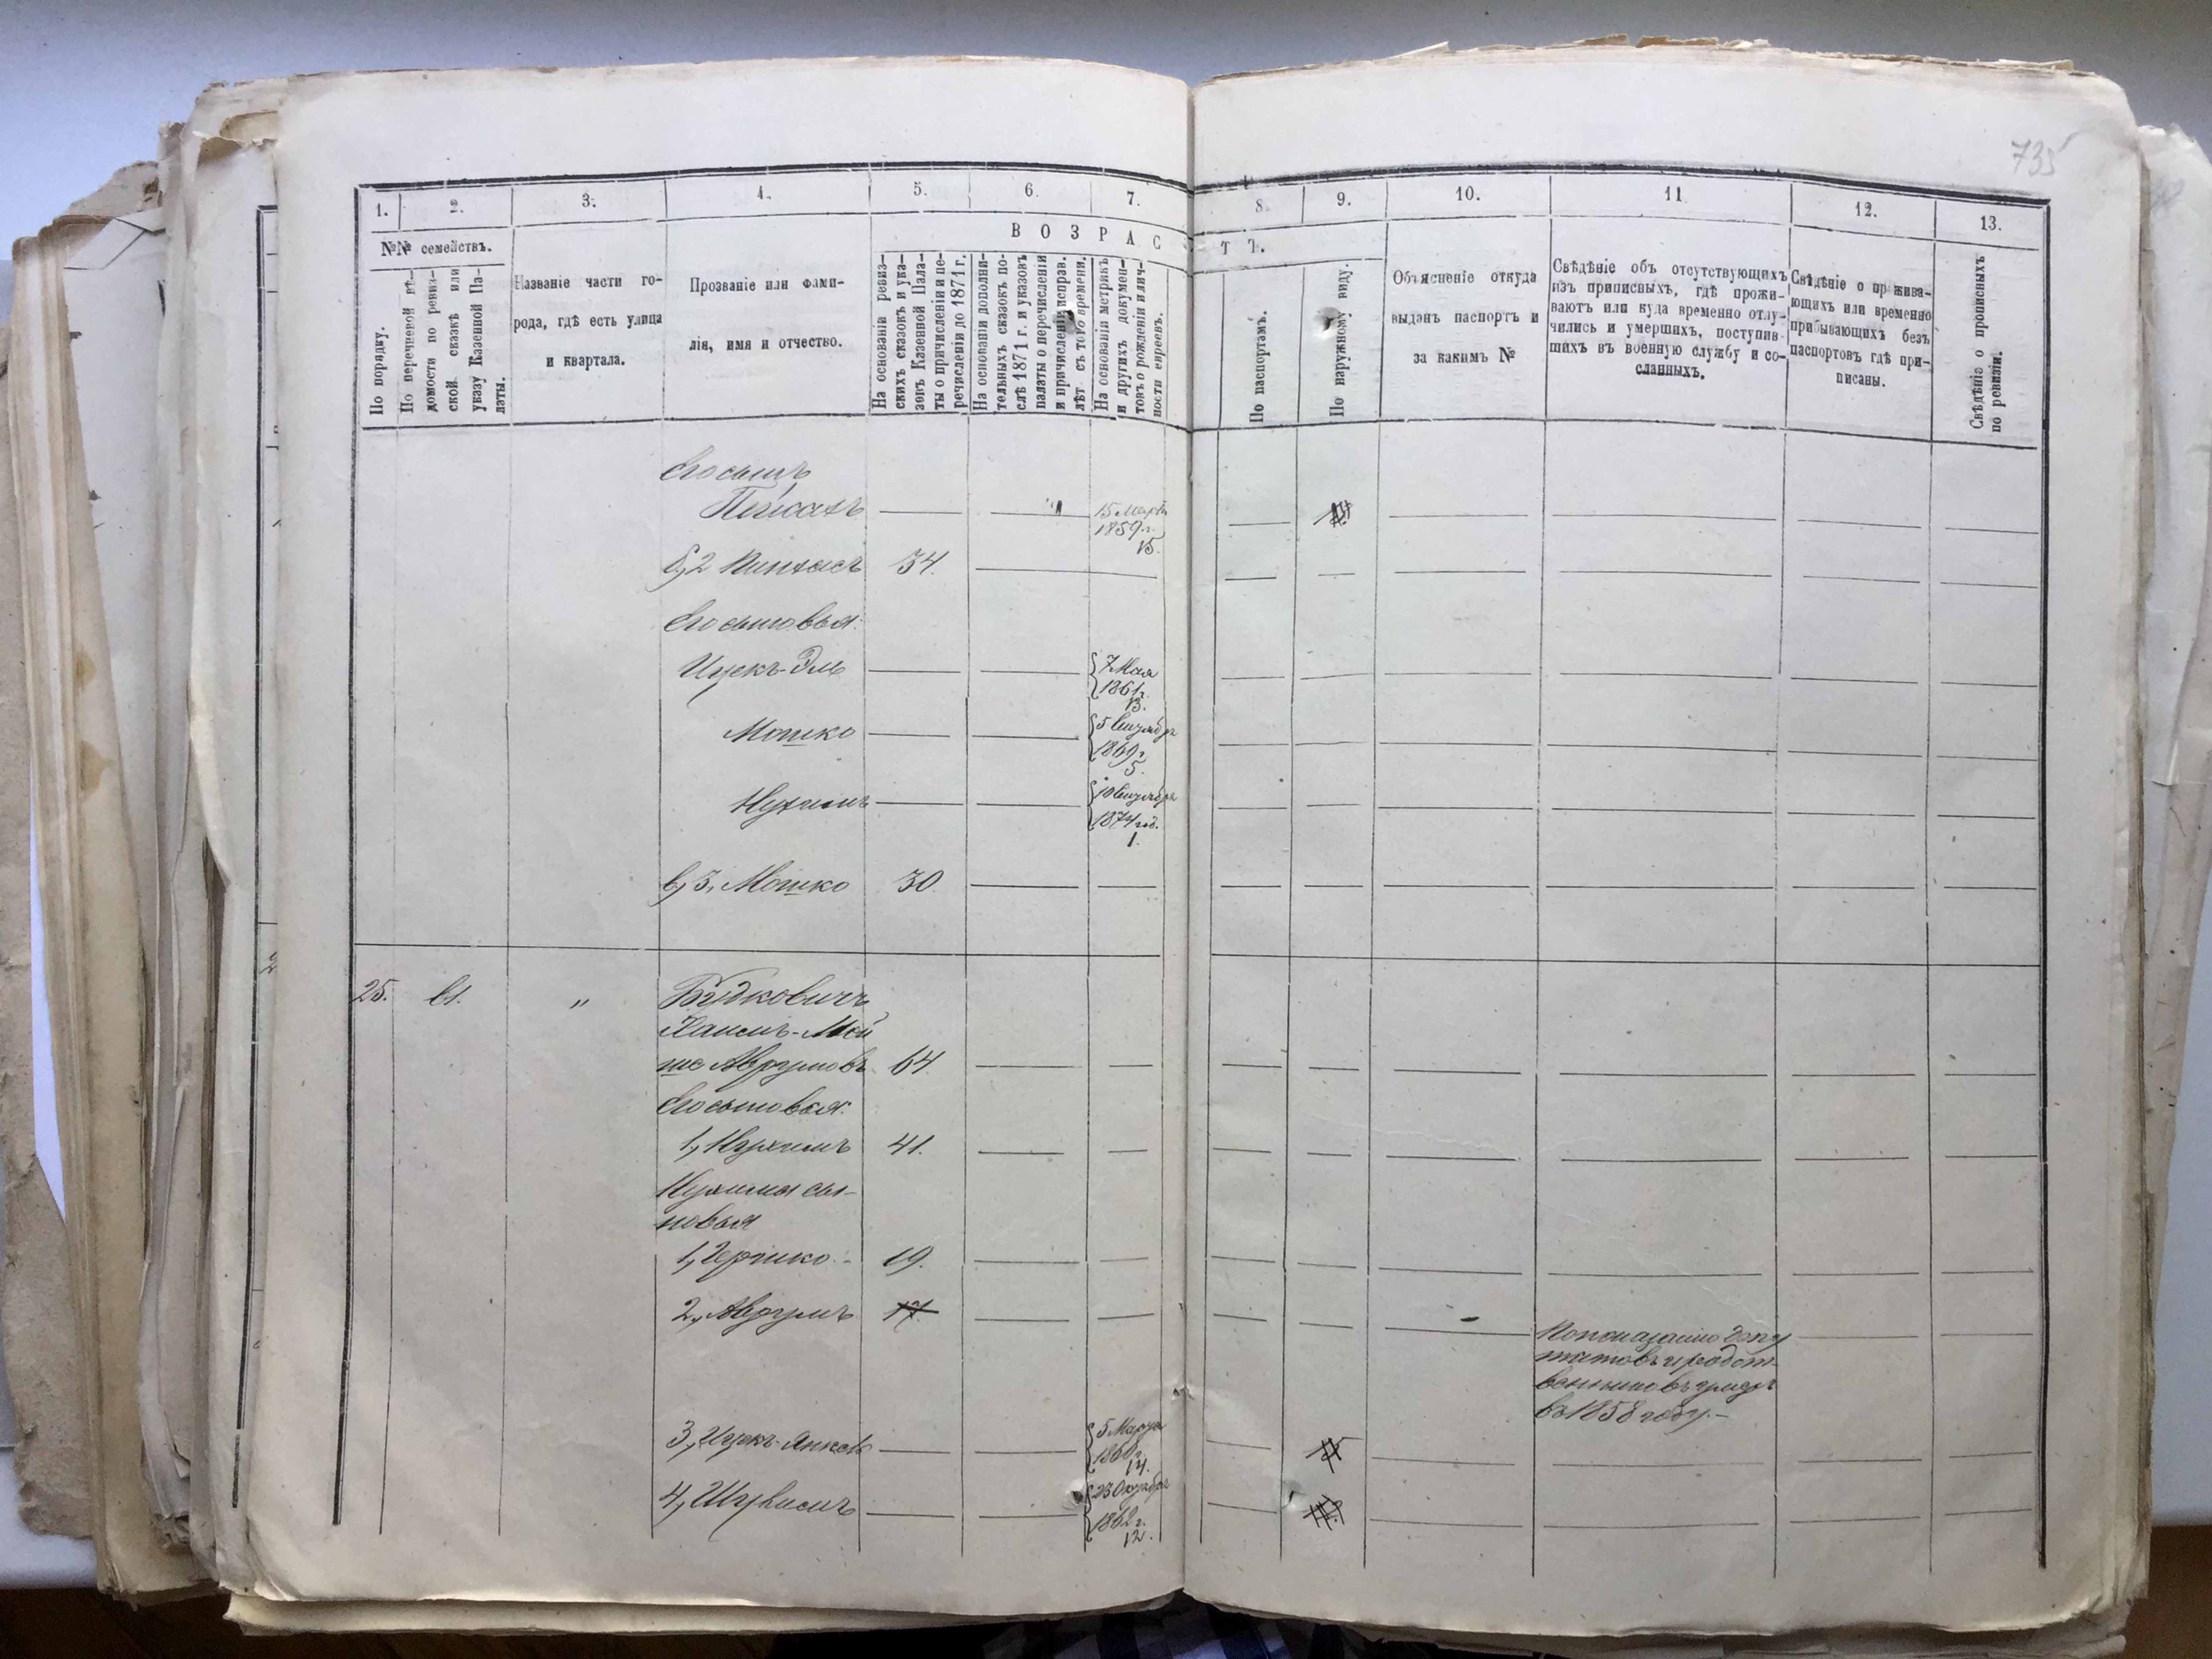 735
1.
2.
3.
4.
5.
6.
7.
8.
9.
10.
11
12.
13.
№№ семействъ.
ВОЗРАС
ТЪ.
По порядку.
По перечневой вѣ-
домости по ревиз-
ской сказкѣ или
указу Казенной Па-
латы.
Названіе части го-
рода, гдѣ есть улица
и квартала.
Прозваніе или фами-
лія, имя и отчество.
На основаніи ревиз-
скихъ сказокъ и ука-
зовъ Казенной Пала-
ты о причисленіи и пе-
речисленіи до 1871 г.
На основаніи дополни-
тельныхъ сказокъ по-
слѣ 1871 г. и указовъ
палаты о перечисленіи
и причисленіи исправ.
лѣт съ того времени.
На основаніи метрикъ
и другихъ докумен-
товъ о рожденіи лич-
ности евреевъ.
По паспортамъ.
По наружному виду.
Объясненіе откуда
выданъ паспортъ и
за какимъ №
Свѣдѣніе объ отсутствующихъ
изъ приписныхъ, гдѣ прожи-
ваютъ или куда временно отлу-
чились и умершихъ, поступив-
шихъ въ военную службу и со-
сланныхъ.
Свѣдѣніе о прожива-
ющихъ или временно
прибывающихъ безъ
паспортовъ гдѣ при-
писаны.
Свѣдѣніе о прописныхъ
по ревизіи.
Его сынъ
Пейсахъ
15 Марта
1859 г.
15.
б, 2 Пинхасъ 34.
Его сыновья:
Ицекъ-Эль
7 Мая
1861 г.
13.
Мошко
5 Сентября
1869 г.
5.
Нухимъ
10 Сентября
1874 год.
1.
в, 3, Мошко 30.
25. 61. " Будковичъ
Хаимъ-Мой
ше Аврумовъ 64.
Его сыновья:
1, Нухимъ 41.
Нухима сы-
новья
1, Гершко 19.
2, Аврумъ 17.
По показанію депу
татовъ и родст
венниковъ умеръ
въ 1858 году.-
3, Ицекъ-Янкель
5 Марта
1860 г.
14.
4,
23 Октября
1862 г.
12.